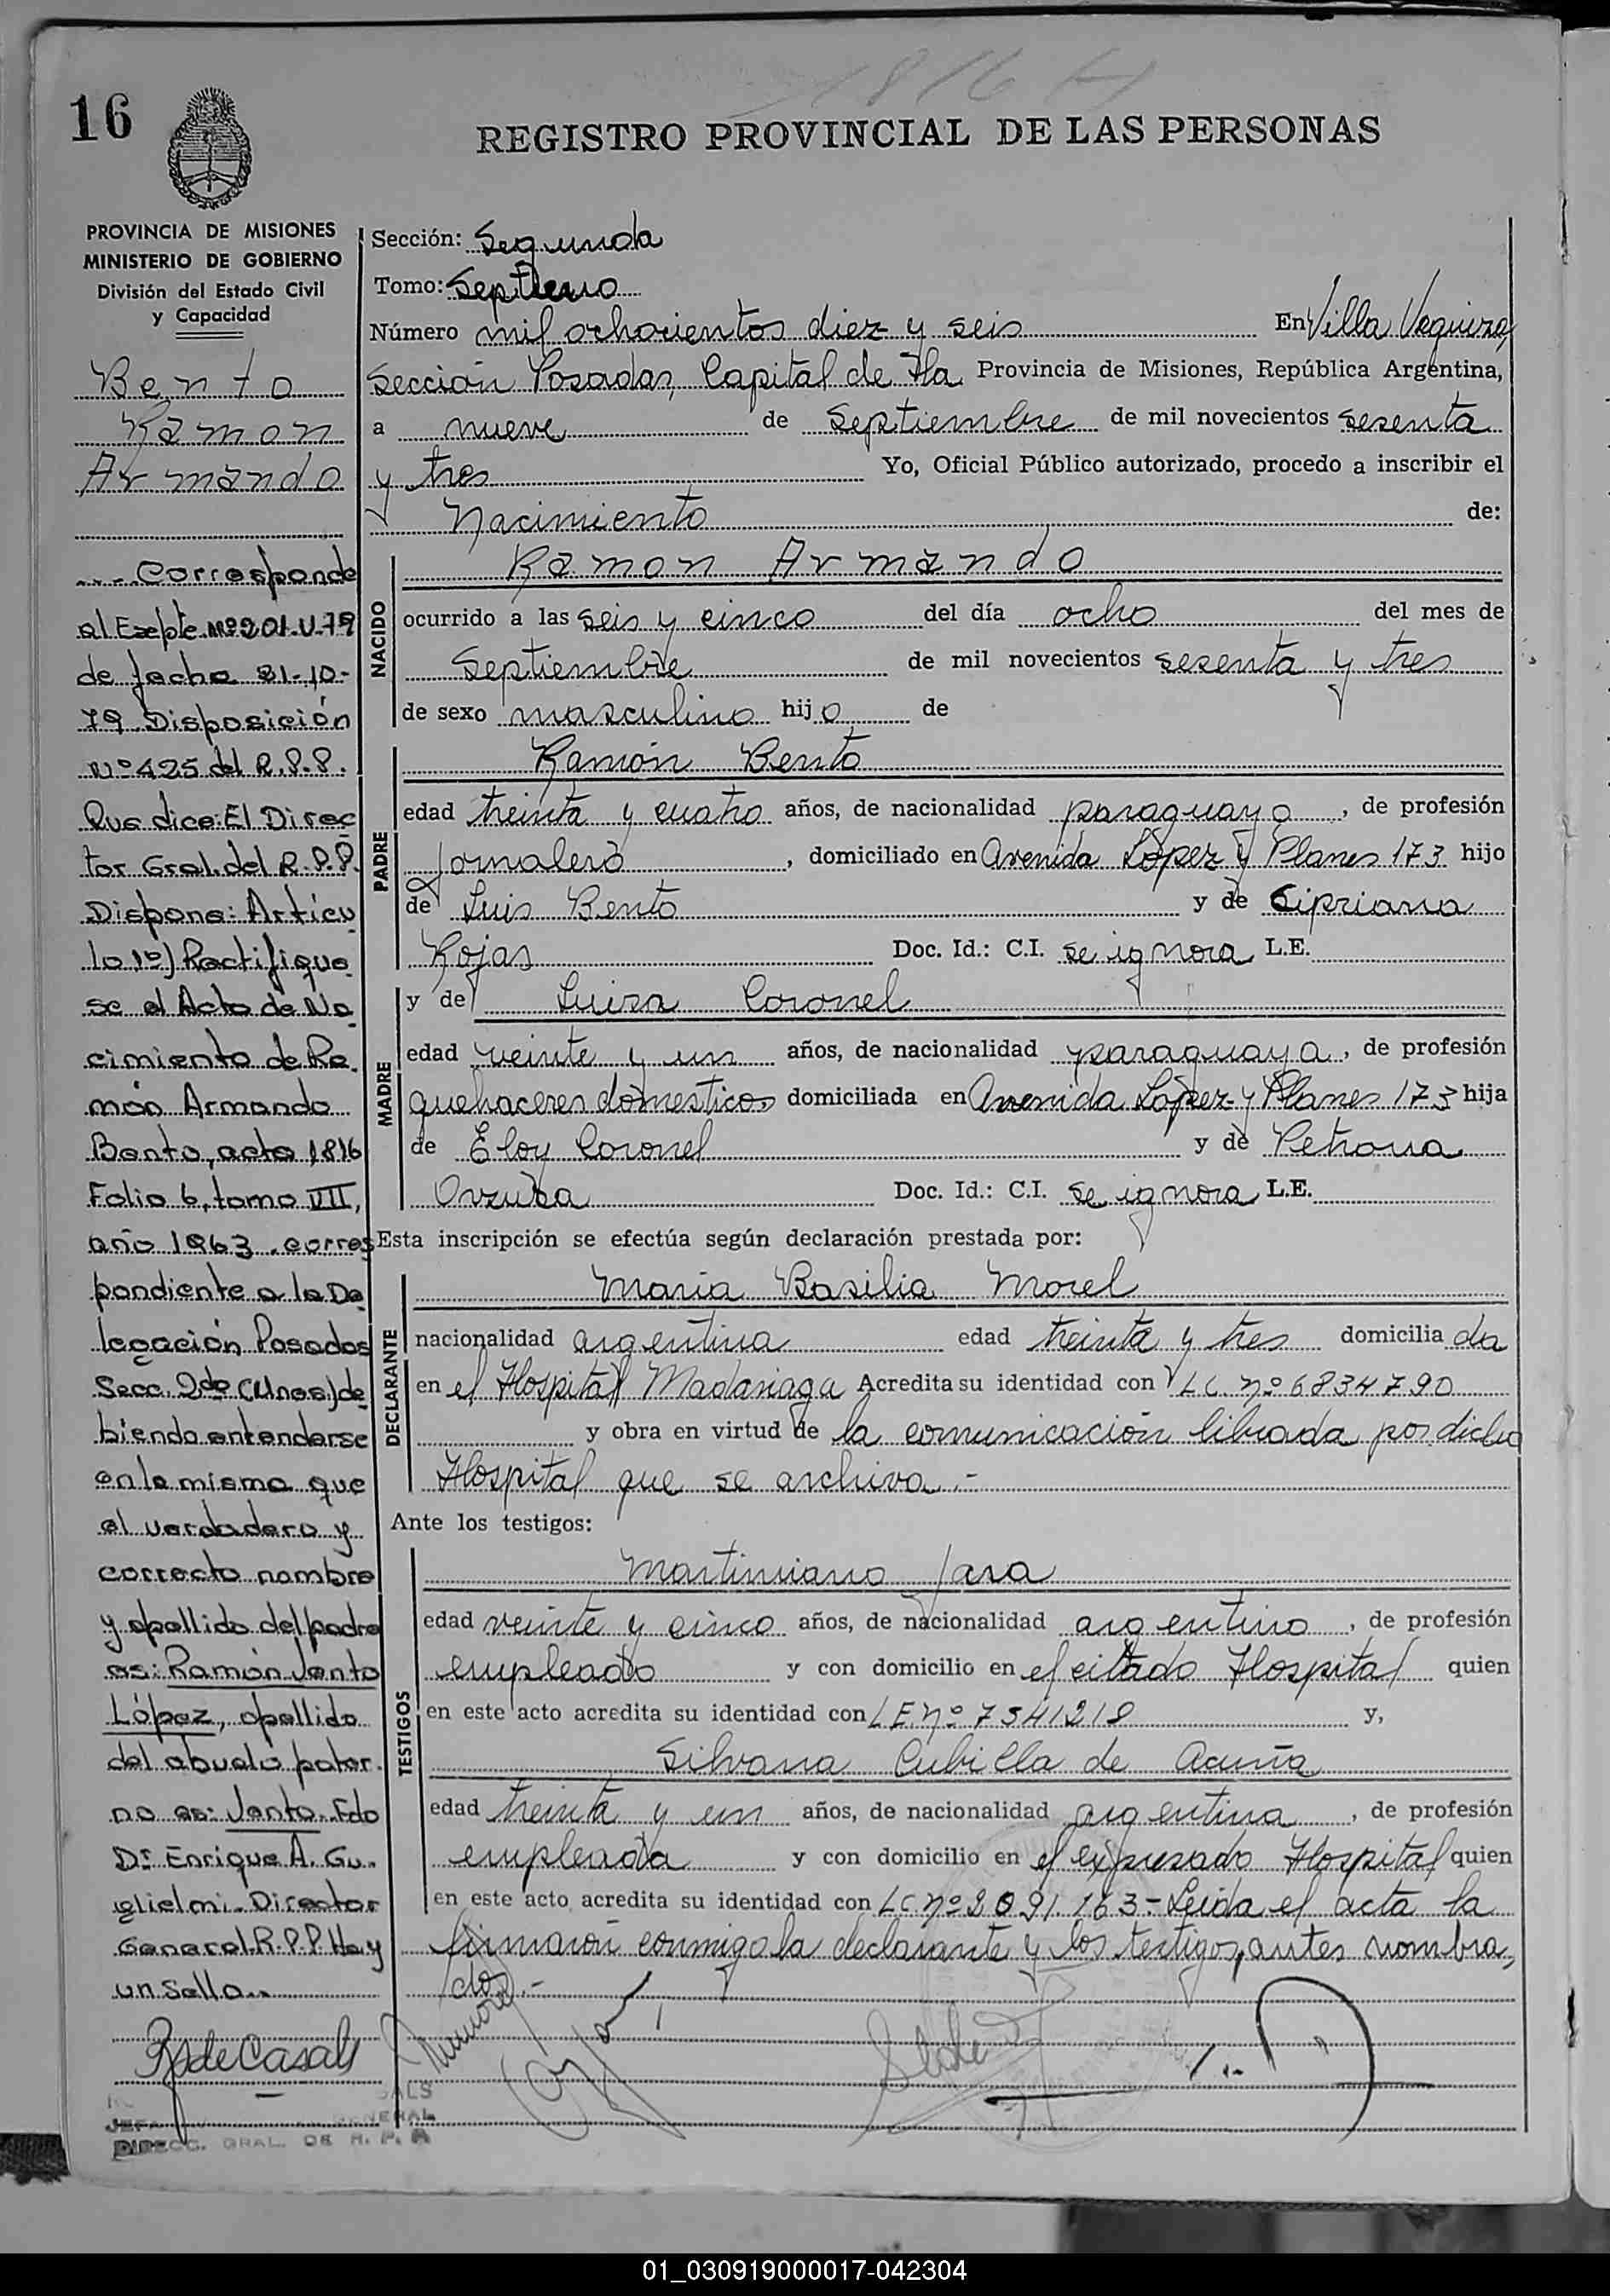 1816
16
REGISTRO PROVINCIAL DE LAS PERSONAS
PROVINCIA DE MISIONES
MINISTERIO DE GOBIERNO
División del Estado Civil
y Capacidad
Bento
Ramon
Armando
..- Corresponde
al Expte Nº 201-U-79
de fecha 31-10-
79. Disposición
Nº 425 del R.P.P.
Que dice: El Direc
tor Gral. del R.P.P.
Dispone: Artícu
lo 1º) Rectifique
se el Acta de Na
cimiento de Ra
món Armando
Bento, acta 1816
Folio 6, tomo VII,
año 1963. corres
pondiente a la De
legación Posadas
Secc. 2da (Unos) de
biendo entenderse
en la misma que
el verdadero y
correcto nombre
y apellido del padre
es: Ramón Jento
López, apellido
del abuelo pater
no es: Jento. Fdo
Dr. Enrique A. Gu
glielmi- Director
General R.P.P. Hay
un Sello..
R de Casals
DIRECC. GRAL. DE R. P. P.
Sección: Segunda
Tomo: Septimo
Número mil ochocientos diez y seis En Villa Urquiza,
Sección Posadas, Capital de la Provincia de Misiones, República Argentina,
a nueve de Septiembre de mil novecientos sesenta
y tres Yo, Oficial Público autorizado, procedo a inscribir el
Nacimiento de:
NACIDO
Ramon Armando
ocurrido a las seis y cinco del día ocho del mes de
Septiembre de mil novecientos sesenta y tres
de sexo masculino hijo de
PADRE
Ramón Bento
edad treinta y cuatro años, de nacionalidad paraguaya, de profesión
Jornalero, domiciliado en Avenida López y Planes 173 hijo
de Luis Bento y de Cipriana
Rojas Doc. Id.: C.I. se ignora L.E.
MADRE
y de Luisa Coronel
edad veinte y un años, de nacionalidad paraguaya, de profesión
quehaceres domesticos domiciliada en Avenida López y Planes 173 hija
de Eloy Coronel y de Petrona
Doc. Id.: C.I. se ignora L.E.
Esta inscripción se efectúa según declaración prestada por:
DECLARANTE
Maria Basilia Morel
nacionalidad argentina edad treinta y tres domiciliada
en el Hospital Madariaga Acredita su identidad con L.C. nº 6834790
y obra en virtud de la comunicación librada por dicho
Hospital que se archiva.-
Ante los testigos:
TESTIGOS
Martiniano Jara
edad veinte y cinco años, de nacionalidad argentino, de profesión
empleado y con domicilio en el citado Hospital quien
en este acto acredita su identidad con L E nº 7541218 y,
Silvana Cubilla de Acuña
edad treinta y un años, de nacionalidad argentina, de profesión
empleada y con domicilio en el expresado Hospital quien
en este acto acredita su identidad con L.C. nº 2091.163.- Leida el acta la
firmaron conmigo la declarante y los testigos antes nombra,
dos.-
01_030919000017-042304